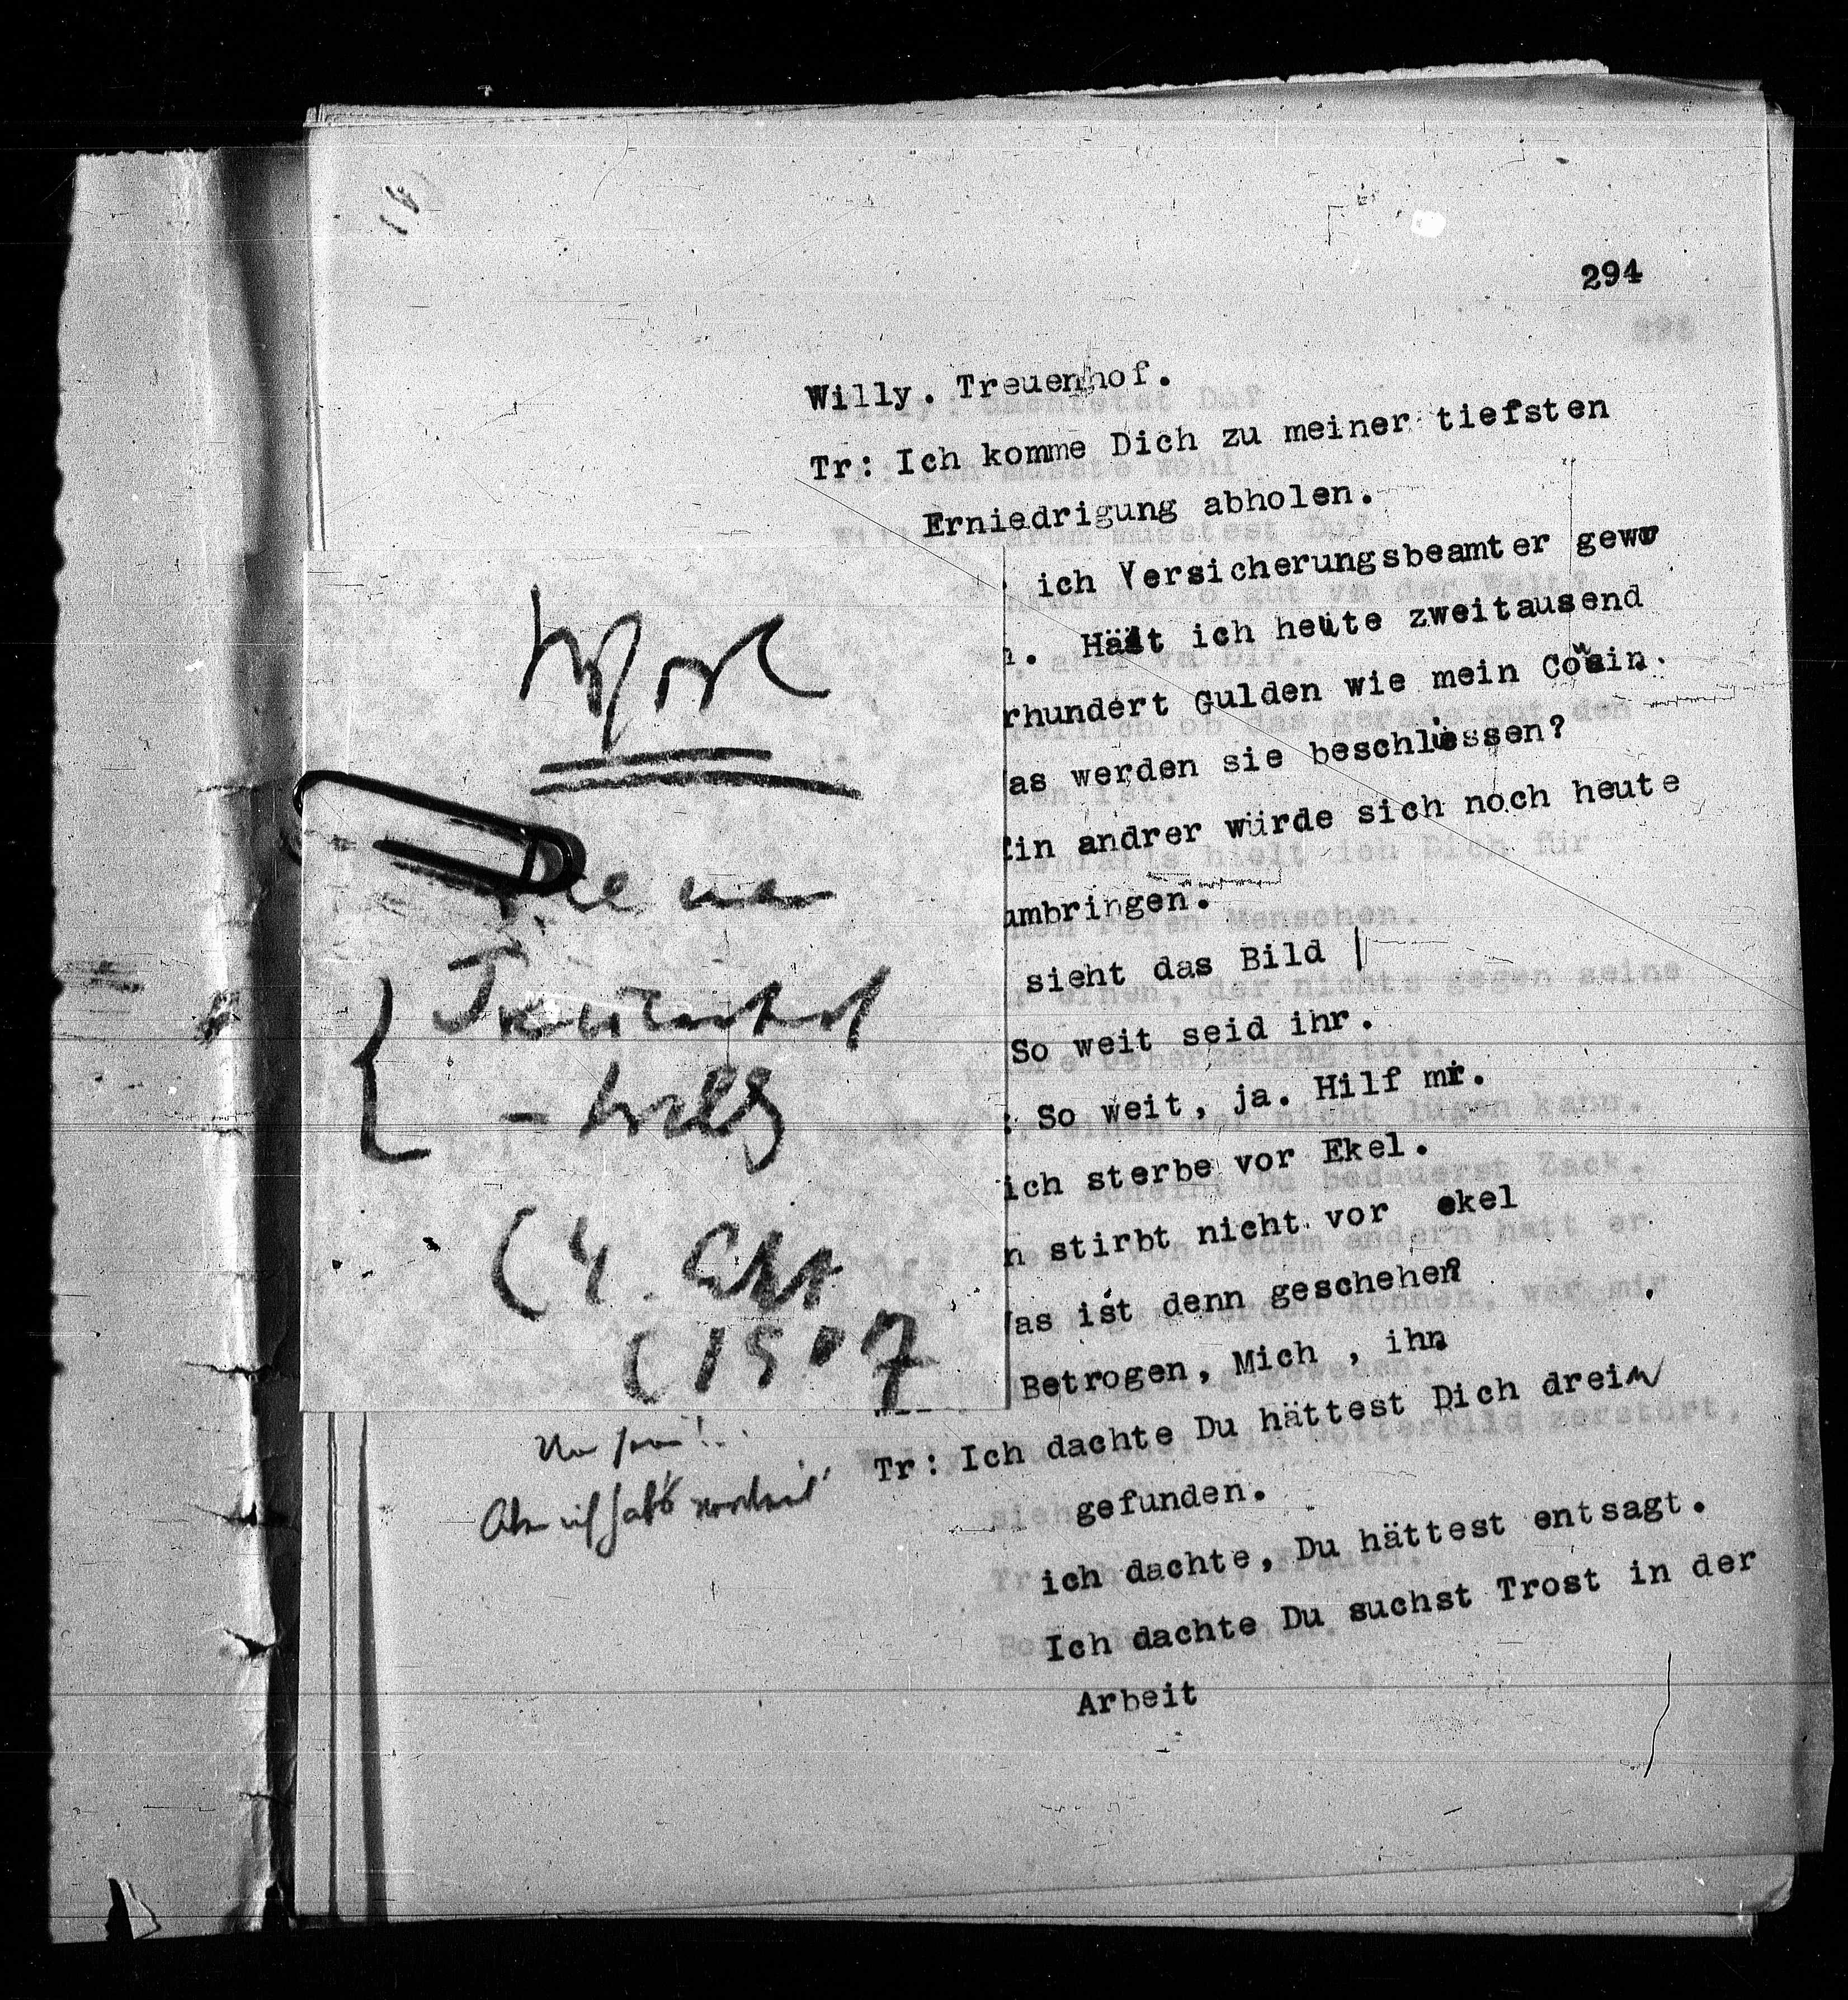 294
Willy. Treuenhof.
Tr: Ich komme Dich zu meiner tiefsten
Erniedrigung abholen.
ich Versicherungsbeamter gewo
n. Hätt ich heute zweitausend
rhundert Gulden wie mein Cousin.
as werden sie beschliessen?
Ein andrer würde sich noch heute
umbringen.
sieht das Bild |
So weit seid ihr.
: So weit, ja. Hilf mir.
ich sterbe vor Ekel.
n stirbt nicht vor ekel
as ist denn geschehen?
Betrogen, Mich , ihn
Tr: Ich dachte Du hättest Dich drein
gefunden.
ich dachte, Du hättest entsagt.
Ich dachte Du suchst Trost in der
Arbeit
Wort
Treuenhof
- Willy
(4. Akt
(1907
Aber ich hab's